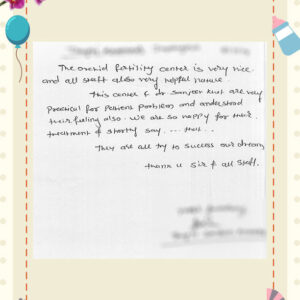 The orchid fertility center is very nice
and all staff also very helpful nature.
This center & dr Sanjeev khurd are very
Practical for Patients Problems and understand
their feeling also. We are so happy for their
treatment & shortly say .... that..
They are all try to success our dream
thank u sir & all staff.